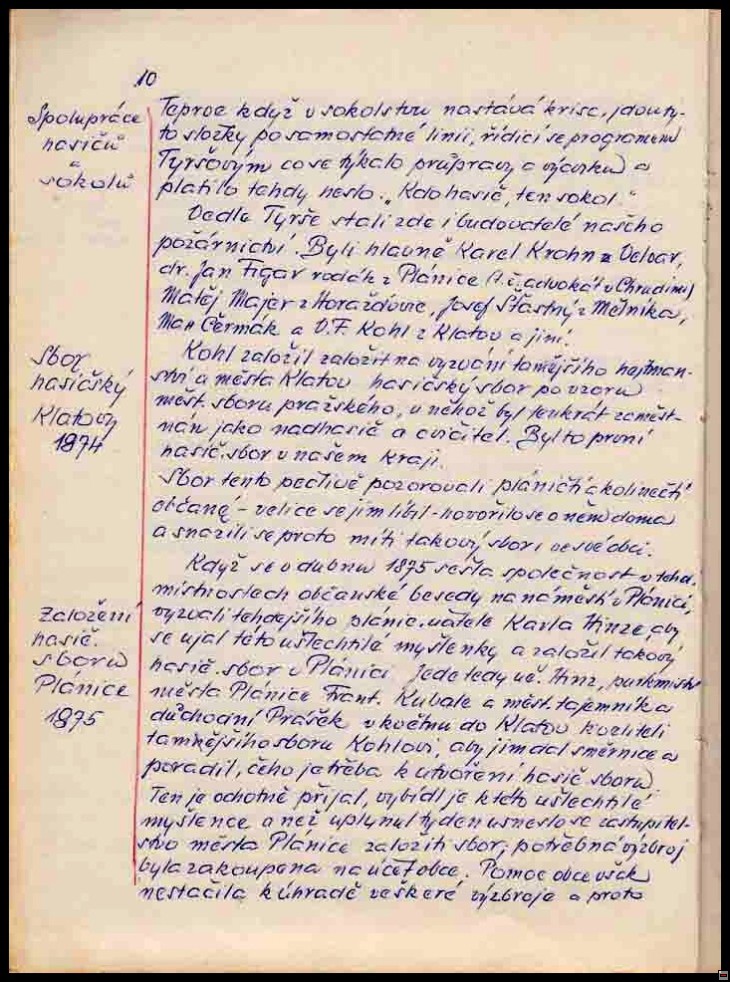 10
Spolupráce
hasičů
a
sokolů
Teprve když v sokolstvu nastává krise, jdou ty-
to složky po samostatné linii, řídící se programem
Tyršovým co se týkalo průpravy a výcviku a
platilo tehdy heslo: „Kdo hasič, ten sokol."
Vedle Tyrše stáli zde i budovatelé našeho
požárnictví. Byli hlavně Karel Krohn z Velvar,
dr. Jan Fígar rodák z Plánice (t.č. advokát v Chrudimi)
Matěj Majer z Horažďovic, Josef Šťastný z Mělníka,
Max Čermák a V.F. Kohl z Klatov a jiní.
Sbor
hasičský
Klatovy
1874
Kohl založil založit na vyzvání tamějšího hejtman-
ství a města Klatov hasičský sbor po vzoru
měst. sboru pražského, u něhož byl tenkrát zaměst-
nán jako nadhasič a cvičitel. Byl to první
hasič. sbor v našem kraji.
Sbor tento pečlivě pozorovali pláničtí a kolinečtí
občané - velice se jim líbil - hovořilo se o něm doma
a snažili se proto míti takový sbor i ve své obci.
Založení
hasič.
sboru
Plánice
1875
Když se v dubnu 1875 sešla společnost v tehd.
místnostech občanské besedy na náměstí v Plánici,
vyzvali tehdejšího plánic. učitele Karla Hinze, aby
se ujal této ušlechtilé myšlenky a založil takový
hasič. sbor v Plánici. Jede tedy uč. Hinz, purkmistr
města Plánice Frant. Kubale a měst. tajemník a
důchodní Prášek v květnu do Klatov k veliteli
tamnějšího sboru Kohlovi, aby jim dal směrnice a
poradil, čeho je třeba k utvoření hasič. sboru.
Ten je ochotně přijal, vybídl je k této ušlechtilé
myšlence a než uplynul týden usneslo se zastupitel-
stvo města Plánice založiti sbor; potřebná výzbroj
byla zakoupena na účet obce. Pomoc obce však
nestačila k úhradě veškeré výzbroje a proto